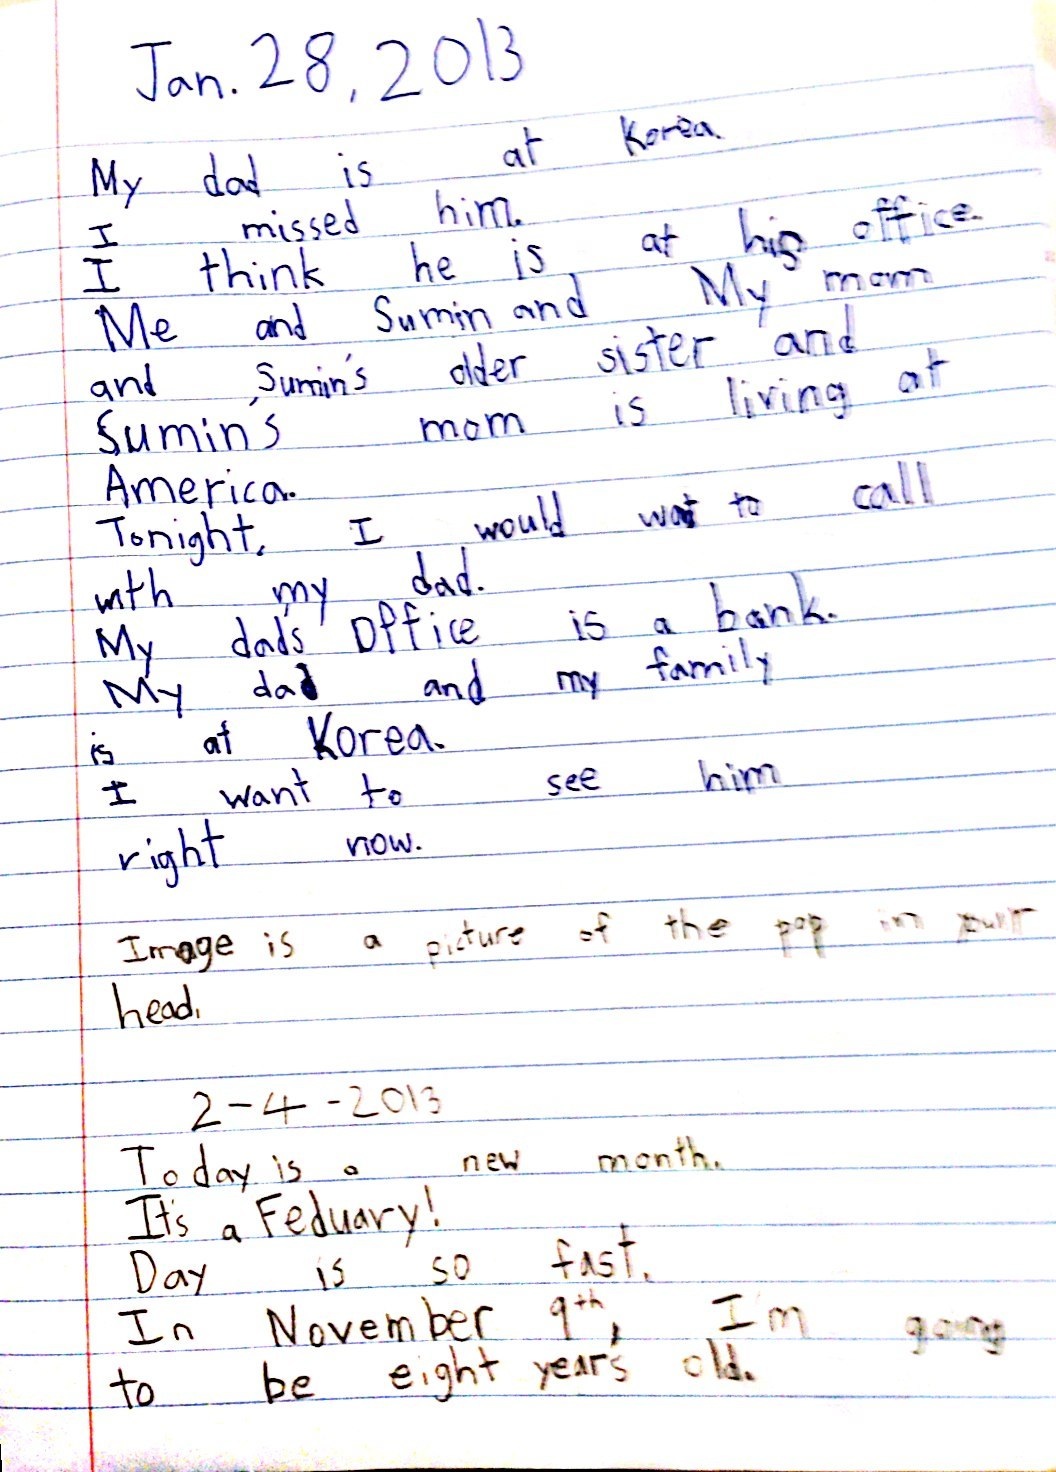 Jan. 28, 2013
My dad is at Korea.
I missed him.
I think he is at his office.
Me and Sumin and My mom
and Sumin's older sister and
Sumin's mom is living at
America.
Tonight, I would wat to call
with my dad.
My dad's Office is a bank.
My dad and my family
is at Korea.
I want to see him
right now.
Image is a picture of the pop in your
head.
2-4-2013
Today is a new month.
It's a Feduary!
Day is so fast.
In November 9th, I'm going
to be eight year's old.